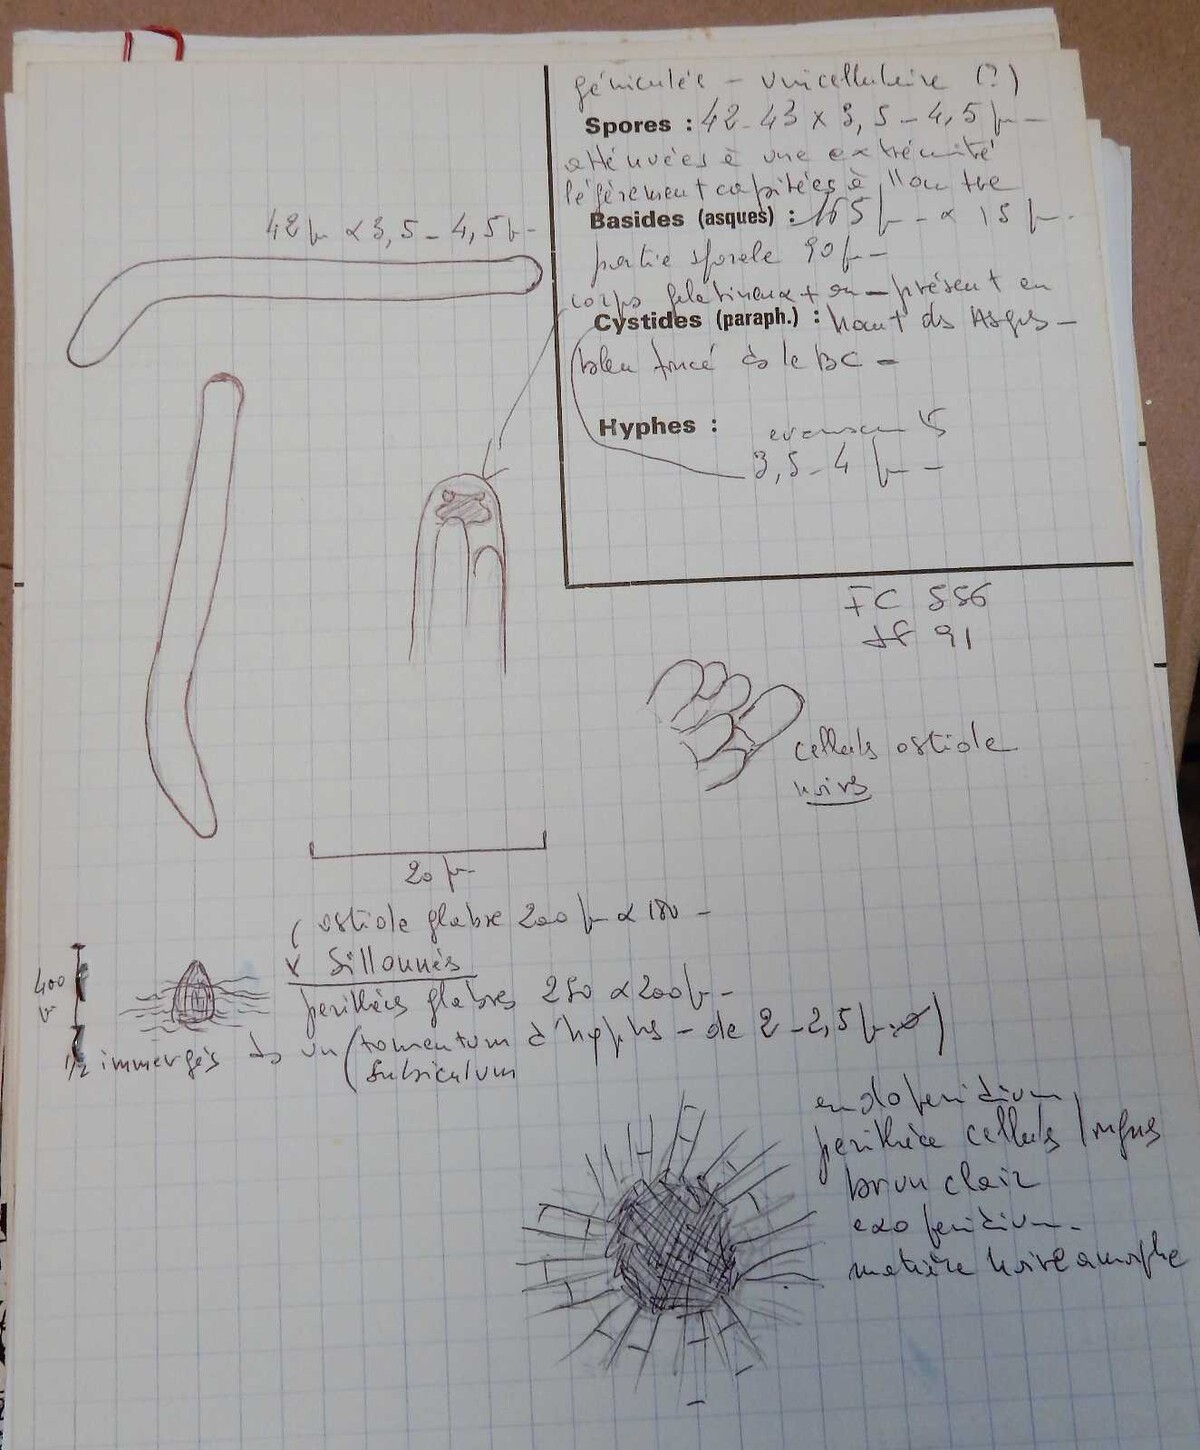 géniculés - unicellulaire (?)
Spores : 42-43 x 3,5 - 4,5 µ -
atténuées à une extrémité
légèrement capitées à l'autre
Basides (asques) : 165 µ - x 15 µ -
partie sporale 90 µ -
corps gélatineux + ou - présent en
Cystides (paraph.) : haut ds Asques -
bleu foncé ds le BC -
Hyphes :
3,5 - 4 µ -
42 µ x 3,5 - 4,5 µ -
FC 556
91
cellules ostiole
noires
20 µ
ostiole glabre 200 µ x 180 -
Sillonnés
périthèces glabres 250 x 200 µ -
400 µ
1/2 immergés ds un (tomentum d'hyphes - de 2 - 2,5 µ Ø)
Subiculum
endoperidium
perithèce cellules
brun clair
exoperidium -
matière noire amorphe